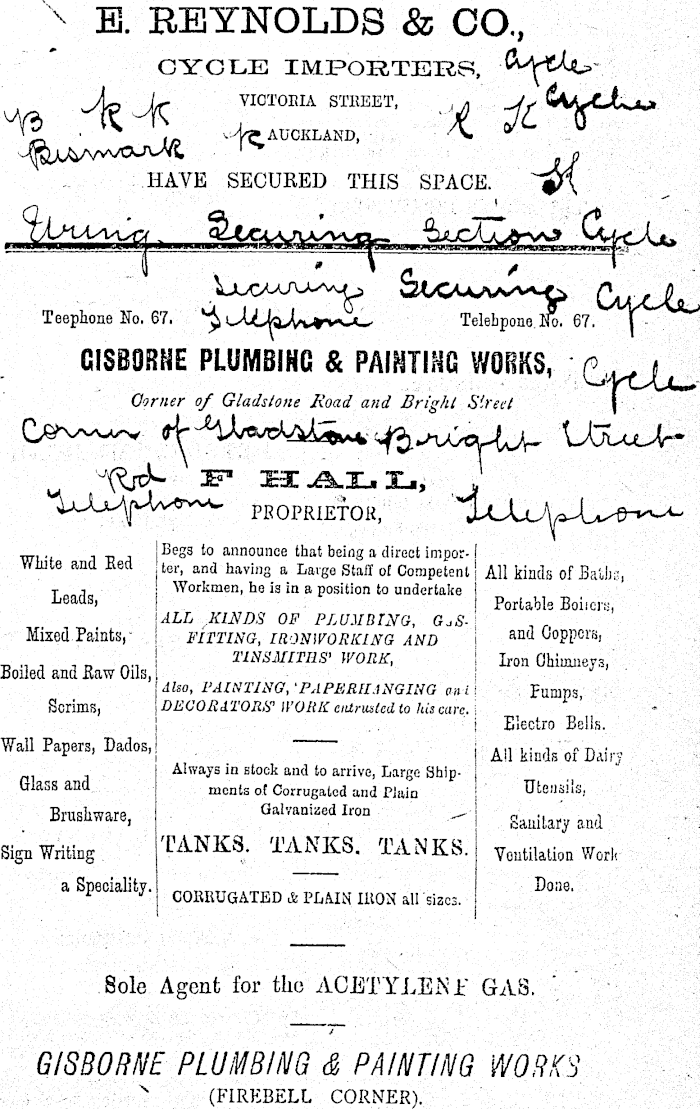 E. REYNOLDS & CO.,
CYCLE IMPORTERS, Cycle
VICTORIA STREET, Cycle
B K K K AUCKLAND, R K
Bismark
HAVE SECURED THIS SPACE.
Securing Section Cycle
Securing Securing Cycle
Teephone No. 67. Telephone Telebpone No. 67.
GISBORNE PLUMBING & PAINTING WORKS, Cycle
Corner of Gladstone Road and Bright Street
Corner of Gladstone Bright Street
Rd F HALL,
Telephone PROPRIETOR, Telephone
White and Red
Leads,
Mixed Paints,
Boiled and Raw Oils,
Scrims,
Wall Papers, Dados,
Glass and
Brushware,
Sign Writing
a Speciality.
Begs to announce that being a direct impor-
ter, and having a Large Staff of Competent
Workmen, he is in a position to undertake
ALL KINDS OF PLUMBING, GAS-
FITTING, IRONWORKING AND
TINSMITHS' WORK,
Also, PAINTING, PAPERHANGING and
DECORATORS' WORK entrusted to his care.
Always in stock and to arrive, Large Ship-
ments of Corrugated and Plain
Galvanized Iron
TANKS. TANKS. TANKS.
CORRUGATED & PLAIN IRON all sizes.
All kinds of Baths,
Portable Boilers,
and Coppers,
Iron Chimneys,
Pumps,
Electro Bells.
All kinds of Dairy
Utensils,
Sanitary and
Ventilation Work
Done.
Sole Agent for the ACETYLENE GAS.
GISBORNE PLUMBING & PAINTING WORKS
(FIREBELL CORNER).